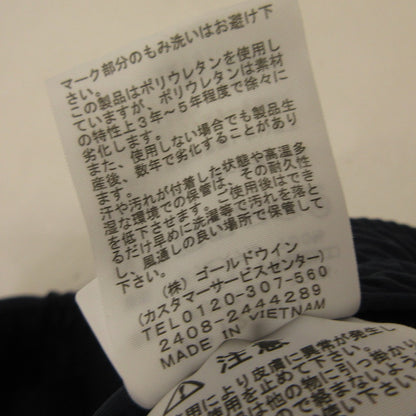 マーク部分のもみ洗いはお避け下
さい。
この製品はポリウレタンを使用し
ていますが、ポリウレタンは素材
の特性上3年～5年程度で徐々に
劣化します。
また、使用しない場合でも製品生
産後、数年で劣化することがあり
ます。
汗や汚れが付着した状態や高温多
湿な環境での保管は、その耐久性
を低下させます。ご使用後はでき
るだけ早めに洗濯等で汚れを落と
し、風通しの良い場所で保管して
下さい。
(株) ゴールドウイン
(カスタマーサービスセンター)
TEL0120-307-560
2408-2444289
MADE IN VIETNAM
注意
使用により皮膚に異常が発生し
使用を止めて下さい。
他の物に引っ掛かり
絡まないよう